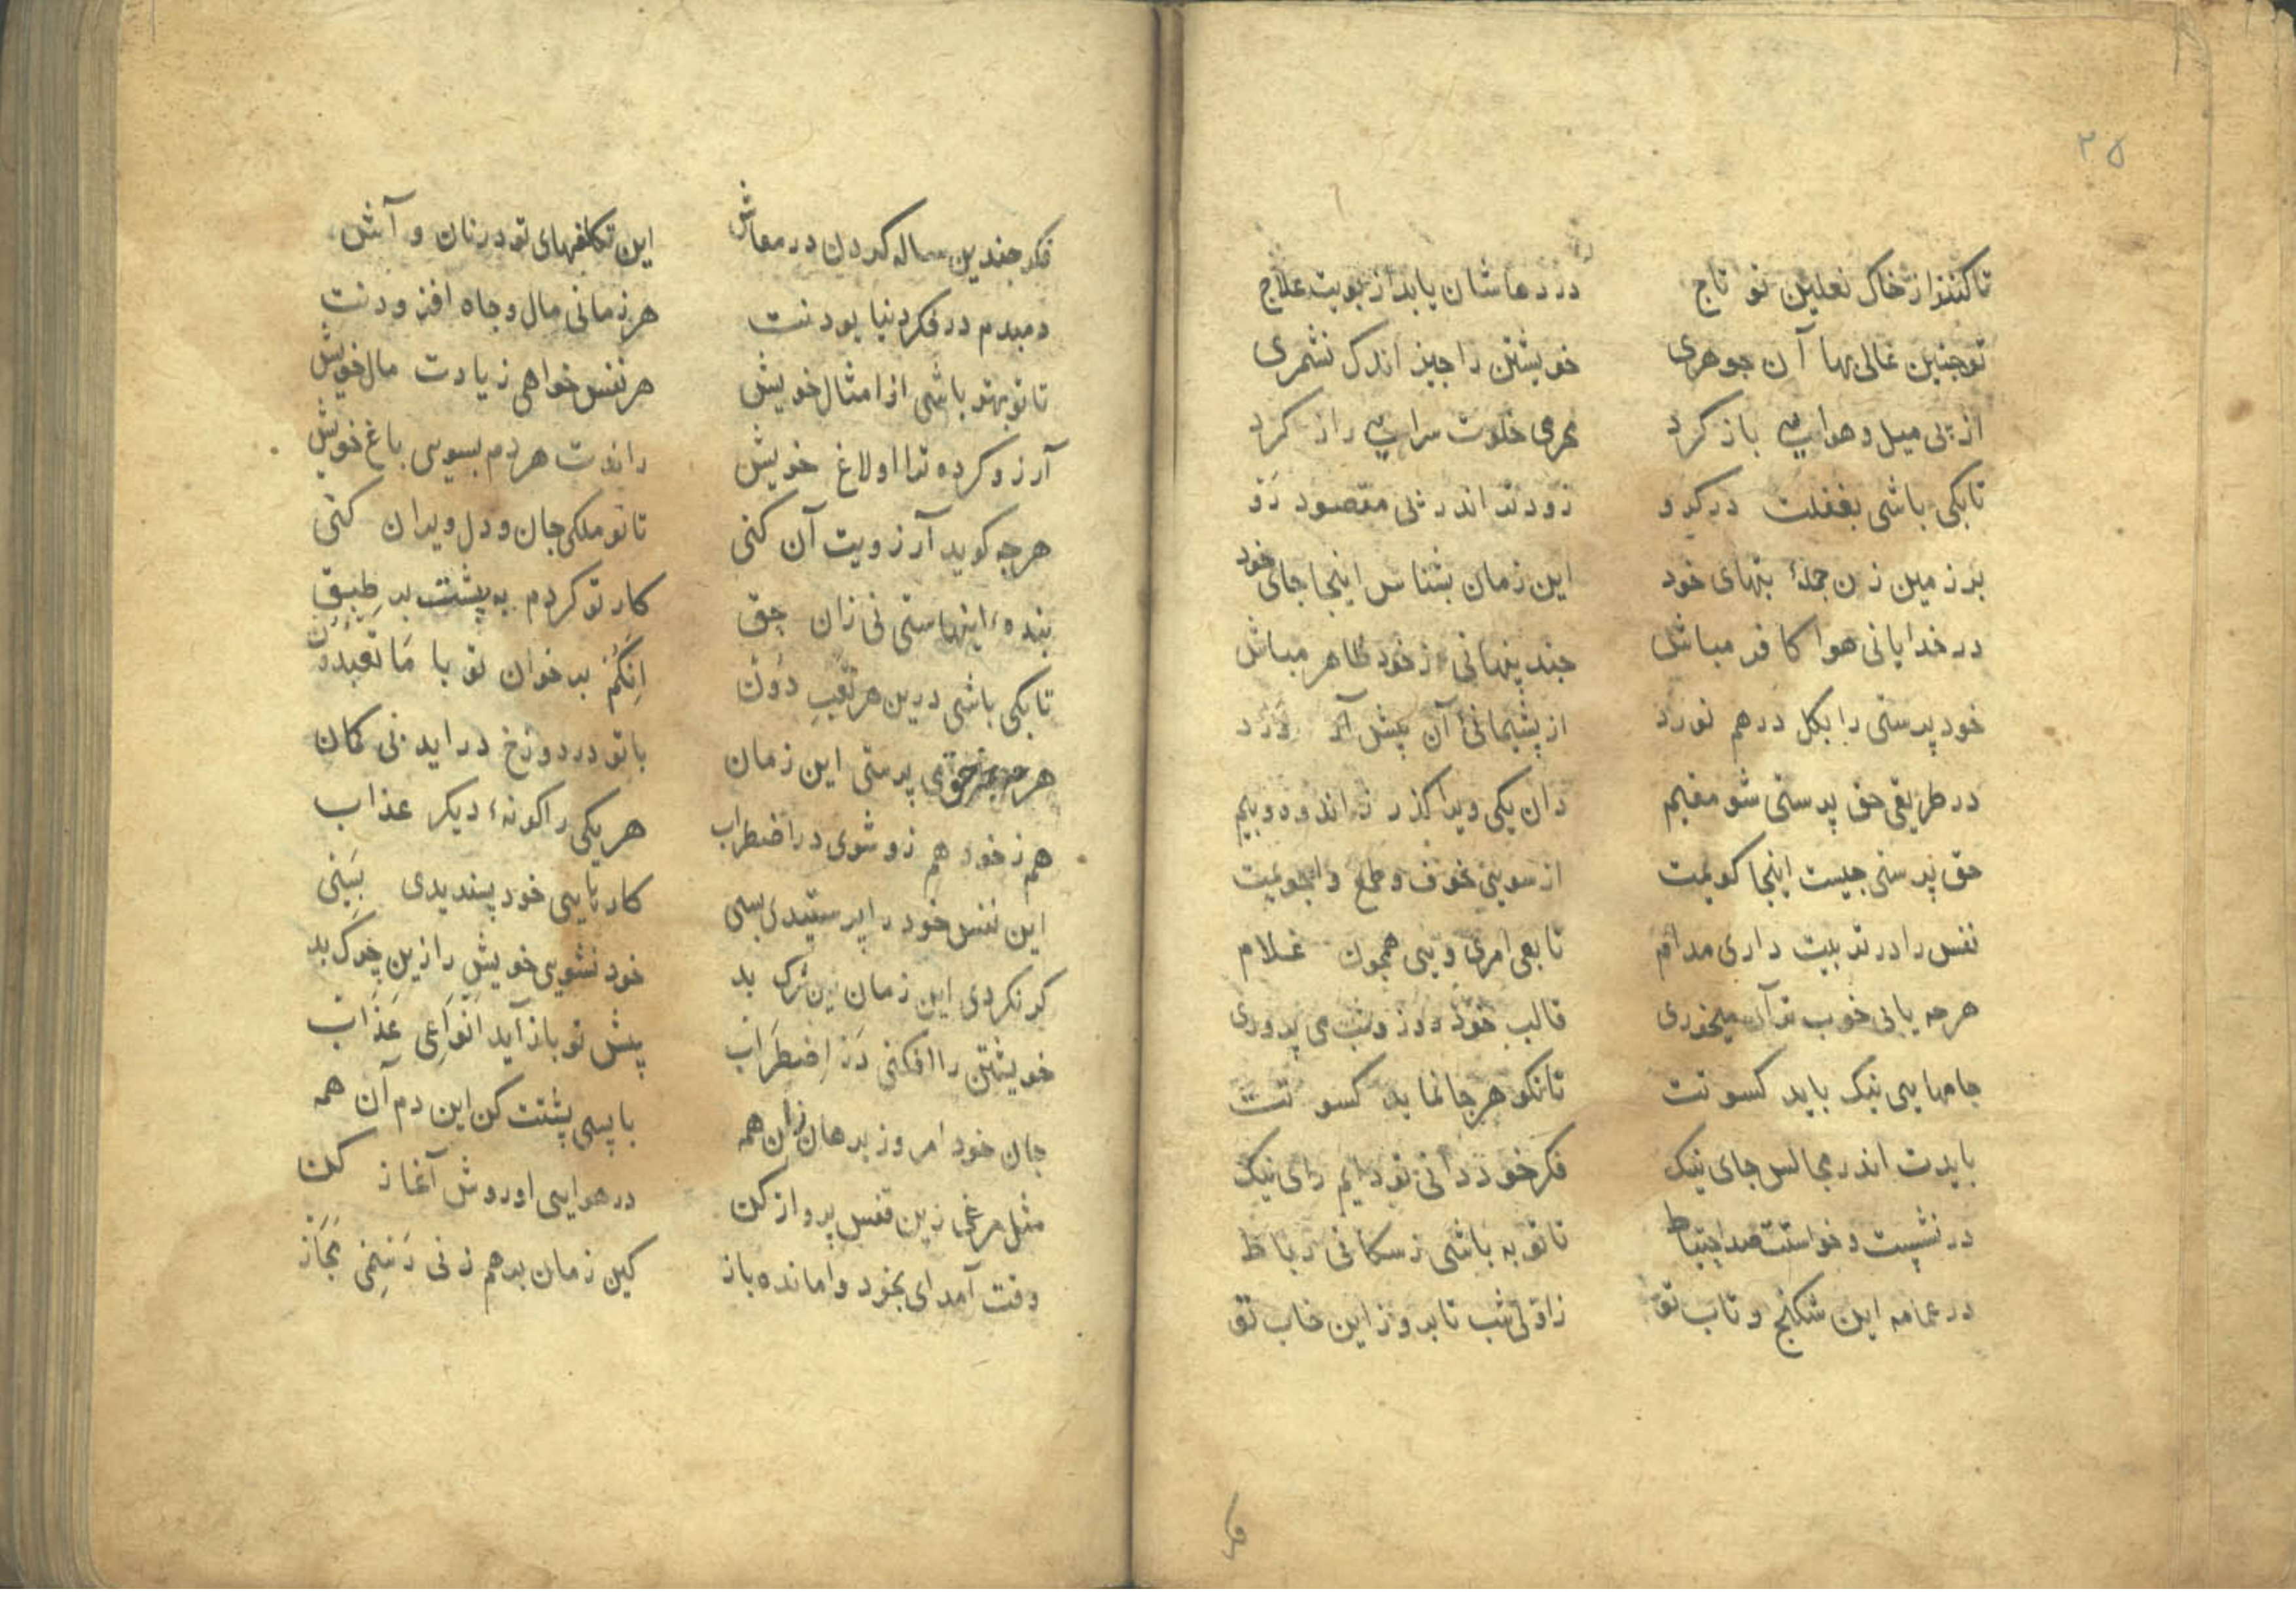 ۲۵
تا کنند از خاک نعلین تو تاج دردهاشان یابد از بویت علاج
تو جنین غالی بها آن جوهری خویشتن را جیز اندک نشمری
از پی میل و هوایی باز کرد محرمی خلوت سرایی راز کرد
تا بکی باشی بغفلت در کرو زودتر اندر پی مقصود رو
بر زمین زن جملهٔ بتهای خود این زمان بشناس اینجا جای خود
در خدایانی هوا کافر مباش جند پنهانی ز خود ظاهر مباش
خود پرستی را بکل درهم نورد از پشیمانی آن پیش آر درد
در طریقی حق پرستی شو مقیم دان یکی ویرا کذر ز اندوه و بیم
حق پرستی جیست اینجا کویمت از سویی خوف و طمع وا جویمت
نفس را در تربیت داری مدام تابعی امری ویی همجون غلام
هرجه یابی خوب تر آن میخوری قالب خود روز و شب می پروری
جامهایی نیک باید کسوتت تا نکو هر جا نماید کسوتت
بایدت اندر مجالس جای نیک فکر خود دانی تو دایم رای نیک
در نشست و خواستت صد احتیاط تا تو به باشی ز سکانی رباط
در عمامه این شکنج و تاب تو ز اولی شب تا بروز این خاب تو
فکر
فکر جندین ساله کردن در معاش این تکلفهای تو در نان و آش
دمبدم در فکر دنیا بودنت هر زمانی مال و جاه افزودنت
تا تو بهتر باشی از امثال خویش هر نفس خواهی زیادت مال خویش
آرزو کرده ترا اولاغ خویش راندت هردم بسوی باغ خویش
هرجه کوید آرزویت آن کنی تا تو ملکی جان و دل ویران کنی
بنده اینهاستی نی زان حق کار تو کردم به پشتت بر طبق
تا بکی باشی درین هر تعب دون انکم بر خوان تو با ما تعبدون
هرجه جز حق می پرستی این زمان با تو در دوزخ دراید بی کمان
هم ز خود هم زو شوی در اضطراب هر یکی را کونهٔ دیکر عذاب
این نفس خود را پرستیدی بسی کارنایی خود پسندیدی بسی
کر نکردی این زمان زین شرک بد خود نشویی خویش را زین چرک بد
خویشتن را افکنی در اضطراب پیش تو باز آید انواعی عذاب
جان خود امروز برهان زان همه با پسی پشتت کن این دم آن همه
مثل مرغی زین قفس پرواز کن در هوایی او روش آغاز کن
وقت آمد ای بخود وا مانده باز کین زمان برهم زنی رسمی مجاز